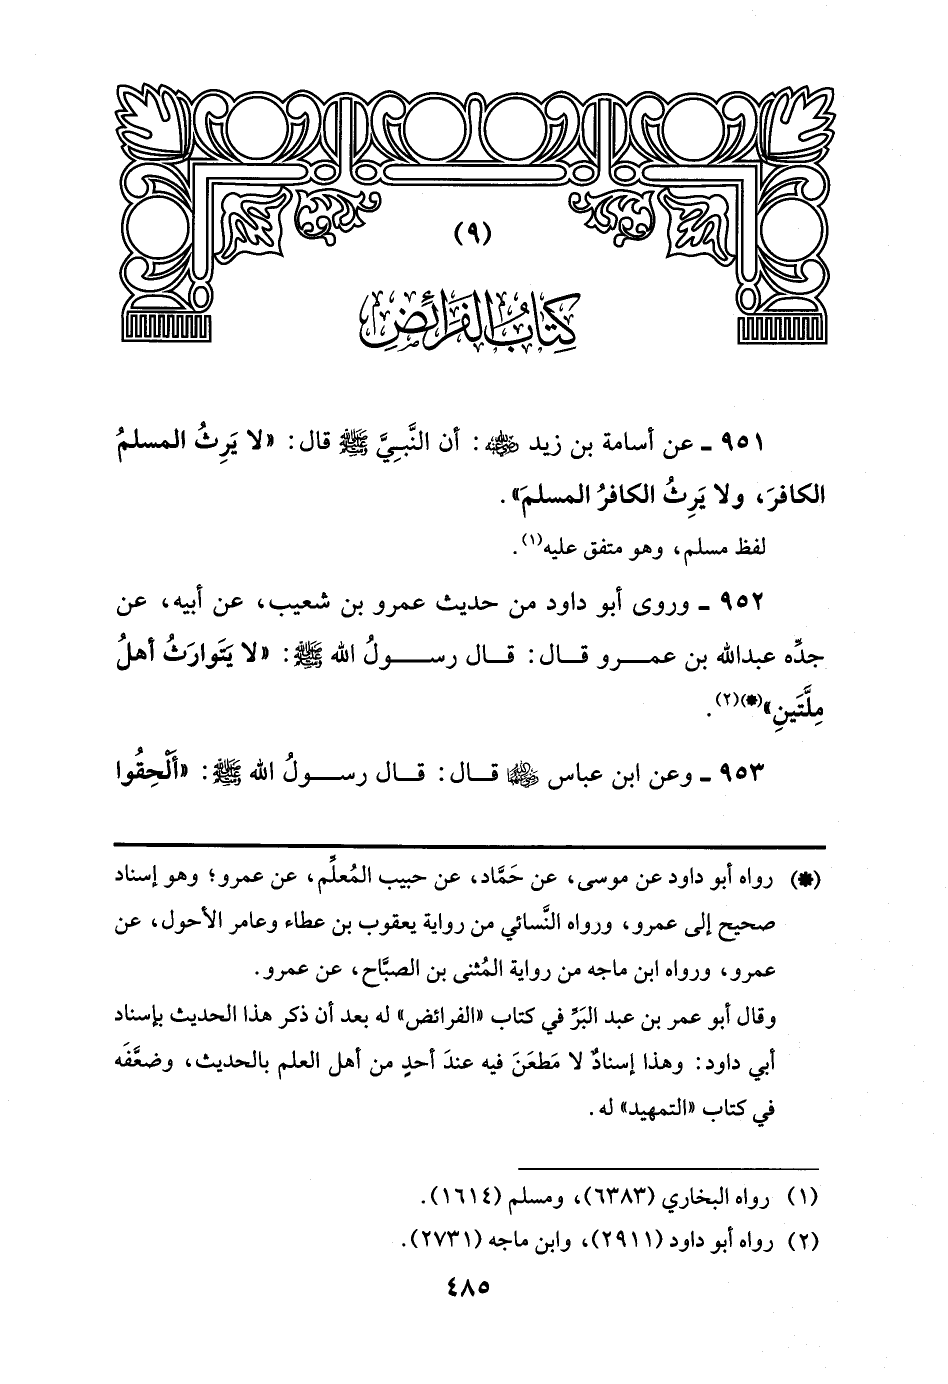 (٩)
كِتَابُ الفَرَائِضِ
٩٥١ ـ عن أسامة بن زيد ﵁: أن النَّبيَّ ﷺ قال: «لا يَرِثُ المسلمُ
الكافرَ، ولا يَرِثُ الكافرُ المسلمَ».
لفظ مسلم، وهو متفق عليه(١).
٩٥٢ ـ وروى أبو داود من حديث عمرو بن شعيب، عن أبيه، عن
جدِّه عبدالله بن عمرو قال: قال رسولُ الله ﷺ: «لا يَتَوارَثُ أهلُ
مِلَّتَينِ»(*)(٢).
٩٥٣ ـ وعن ابن عباس ﵄ قال: قال رسولُ الله ﷺ: «أَلْحِقُوا
(*) رواه أبو داود عن موسى، عن حَمَّاد، عن حبيب المُعلِّم، عن عمرو؛ وهو إسناد
صحيح إلى عمرو، ورواه النَّسائي من رواية يعقوب بن عطاء وعامر الأحول، عن
عمرو، ورواه ابن ماجه من رواية المُثنى بن الصبَّاح، عن عمرو.
وقال أبو عمر بن عبد البَرِّ في كتاب «الفرائض» له بعد أن ذكر هذا الحديث بإسناد
أبي داود: وهذا إسنادٌ لا مَطعَنَ فيه عندَ أحدٍ من أهل العلم بالحديث، وضعَّفَه
في كتاب «التمهيد» له.
(١) رواه البخاري (٦٣٨٣)، ومسلم (١٦١٤).
(٢) رواه أبو داود (٢٩١١)، وابن ماجه (٢٧٣١).
٤٨٥